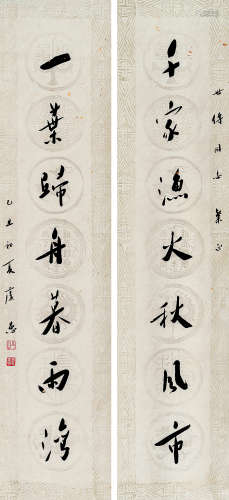 世 同志 正
千家漁火秋風市
一葉歸舟暮雨灣
乙丑初夏虞愚